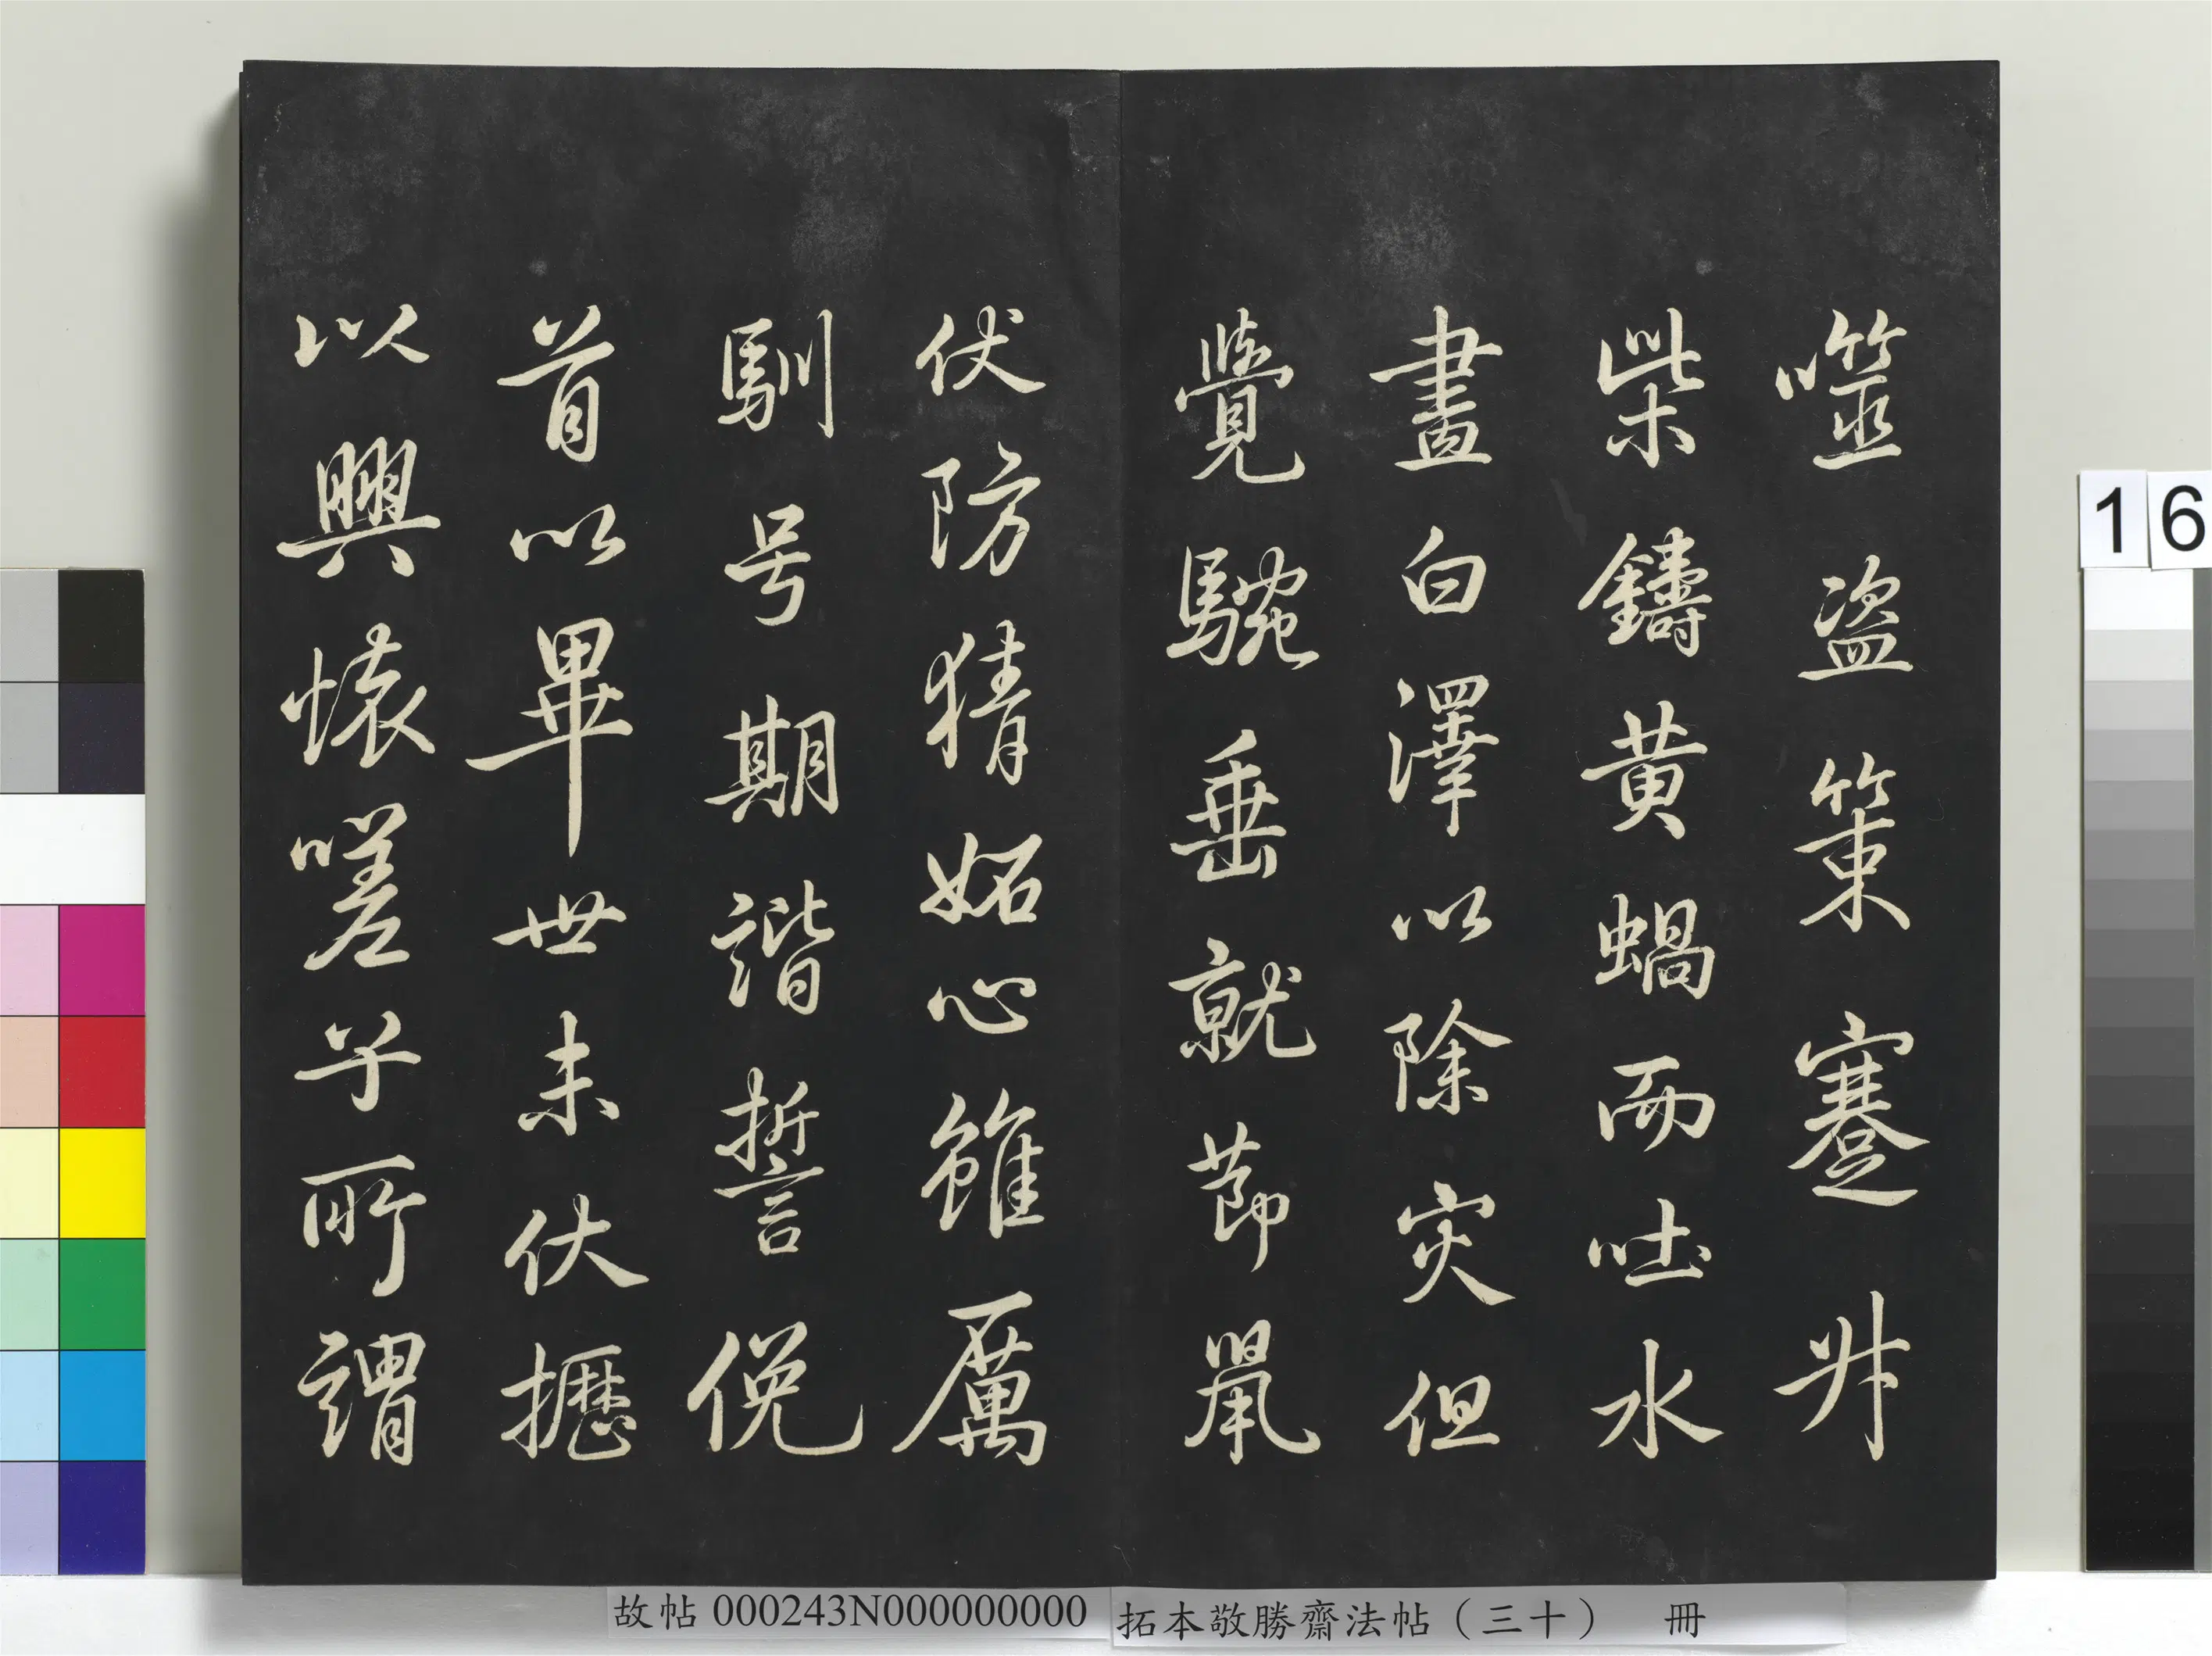 噬盜策蹇升
柴鑄黃蝸而吐水
畫白澤以除灾但
覺垂就節
伏防猜妬心雖厲
馴号期諧誓俛
首以畢世未伏攊
以興懷嗟乎所謂
故帖 000243N000000000
拓本敬勝齋法帖（三十） 冊
16